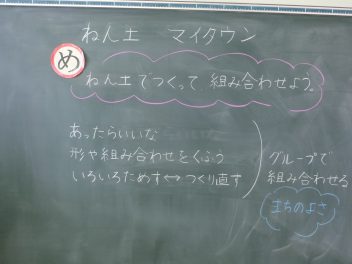 ねん土　マイタウン
め
ねん土でつくって 組み合わせよう。
あったらいいな
形や組み合わせをくふう
いろいろためす↔つくり直す
グループで
組み合わせる
まちのよさ